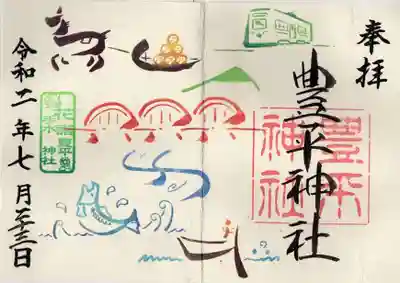 奉拝
豊平神社
豊平
神社
令和二年七月二十三日